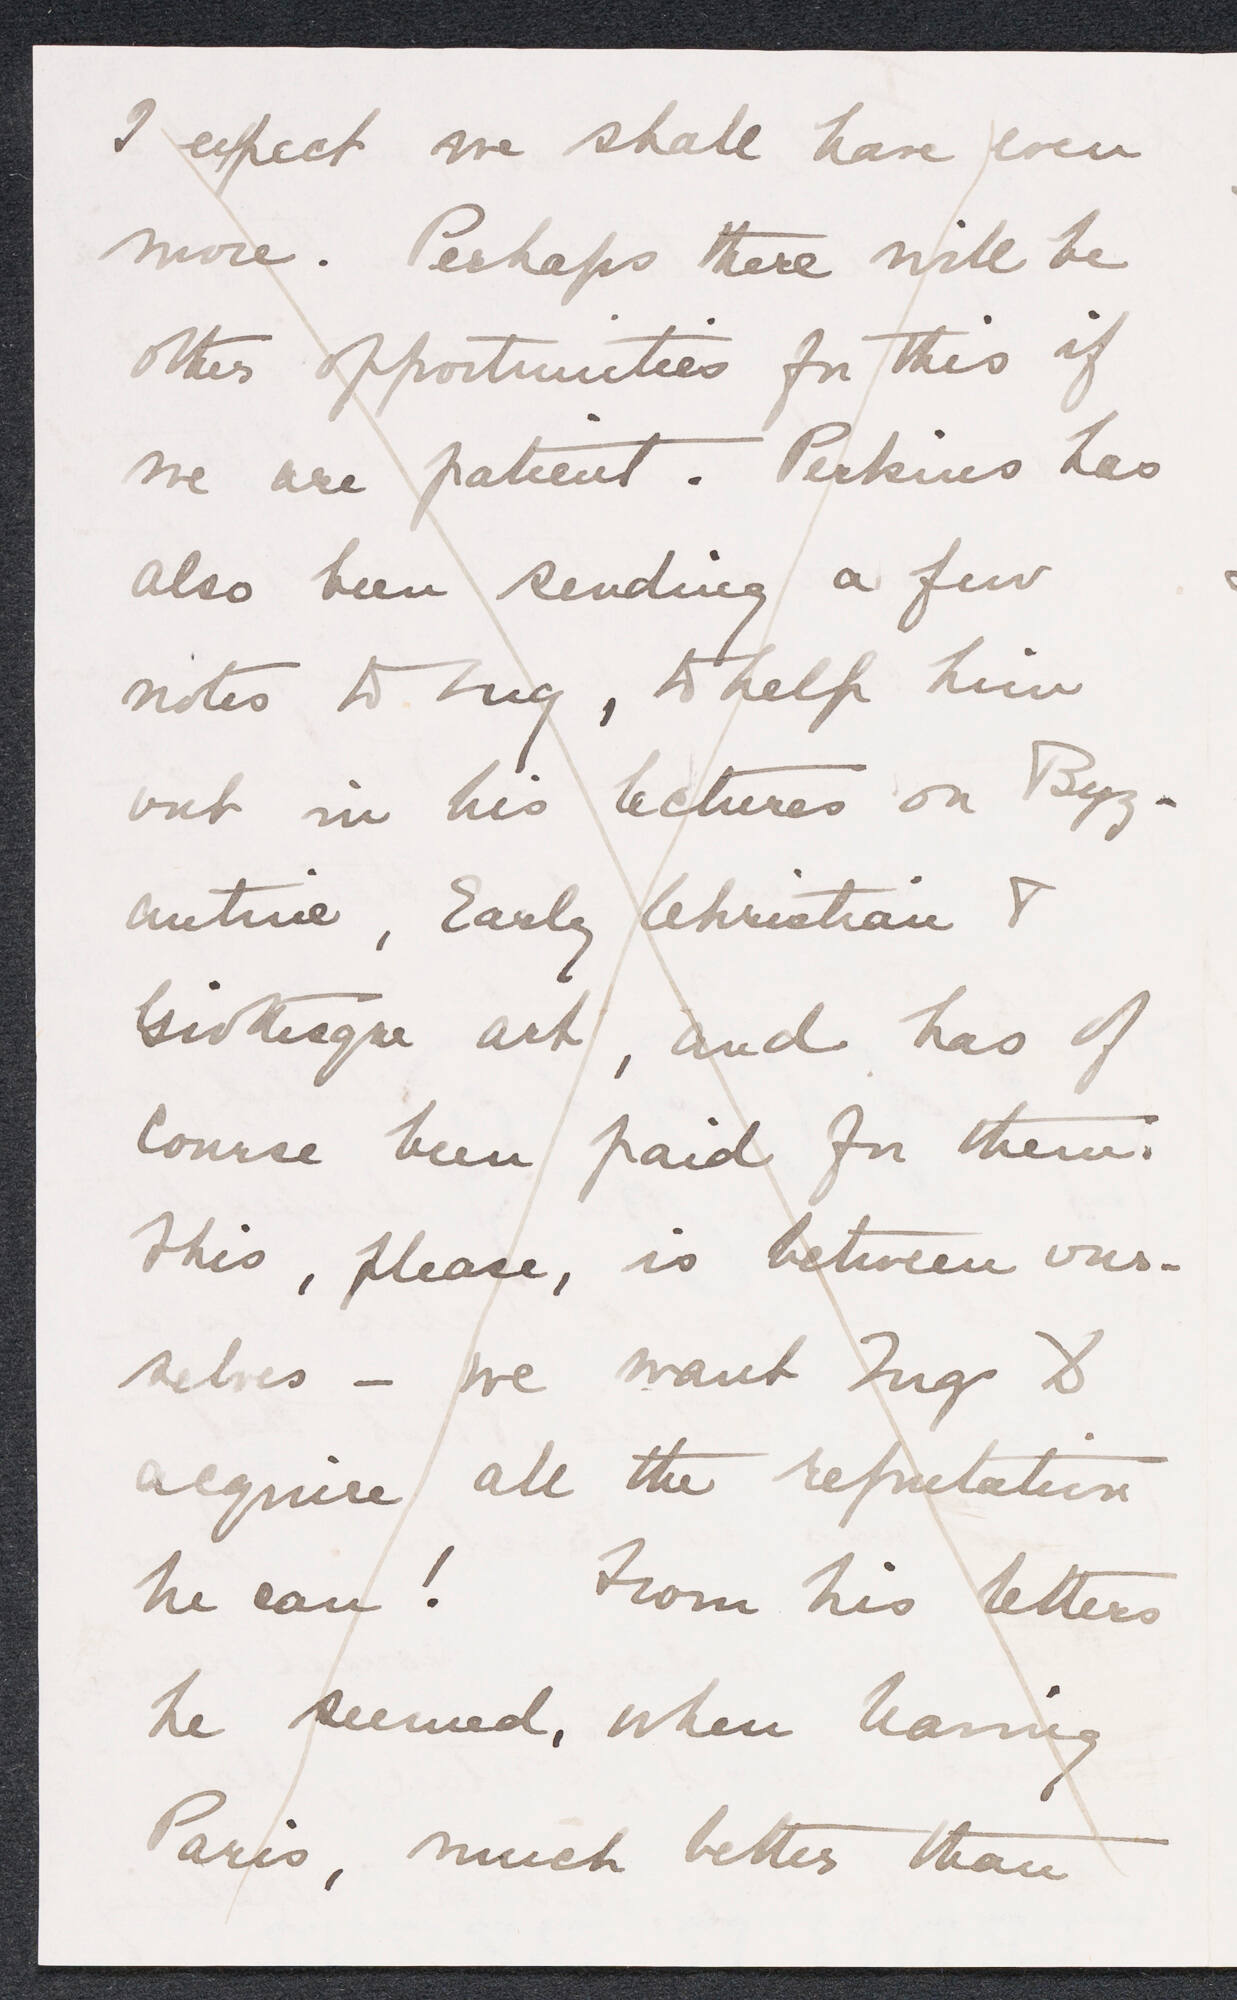 I expect we shall have even
more. Perhaps there will be
other opportunities for this if
we are patient. Perkins has
also been sending a few
notes to Ing, to help him
out in his lectures on Byz-
antine, Early Christian &
Giottesque art, and has of
course been paid for them.
This, please, is between our-
selves – we want Ing to
acquire all the reputation
he can! From his letters
he seemed, when leaving
Paris, much better than